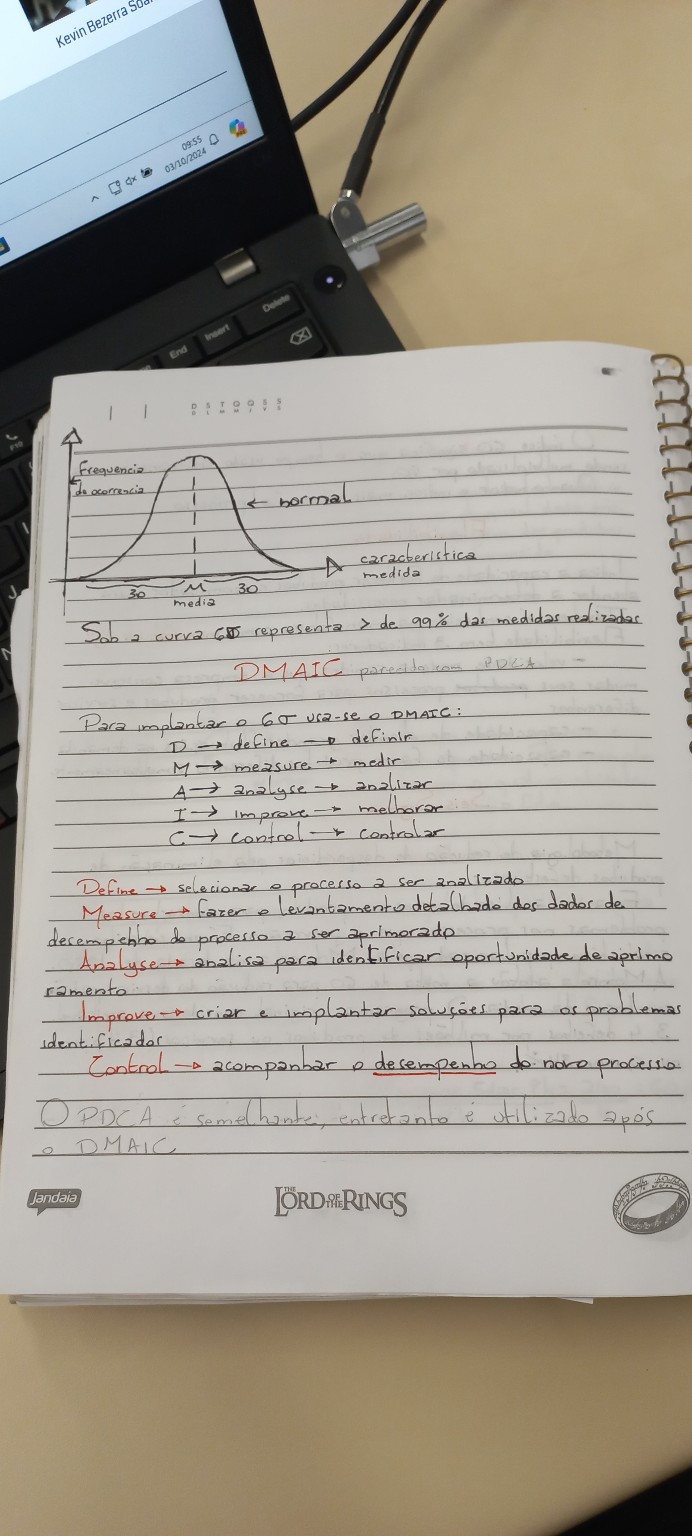 Kevin Bezerra Soa
09:55
03/10/2024
Delete
Insert
End
F10
D S T Q Q S S
Frequencia
de ocorrencia
normal
característica
medida
3σ M 3σ
media
Sob a curva 6σ representa > de 99% das medidas realizadas
DMAIC parecido com PDCA
Para implantar o 6σ usa-se o DMAIC:
D → define → definir
M → measure → medir
A → analyse → analizar
I → improve → melhorar
C → control → controlar
Define → selecionar o processo a ser analizado
Measure → fazer o levantamento detalhado dos dados de
desempenho do processo a ser aprimorado
Analyse → analisa para identificar oportunidade de aprimo
ramento
Improve → criar e implantar soluções para os problemas
identificados
Control → acompanhar o desempenho do novo processo
O PDCA é semelhante, entretanto é utilizado após
o DMAIC
Jandaia
THE LORD OF THE RINGS